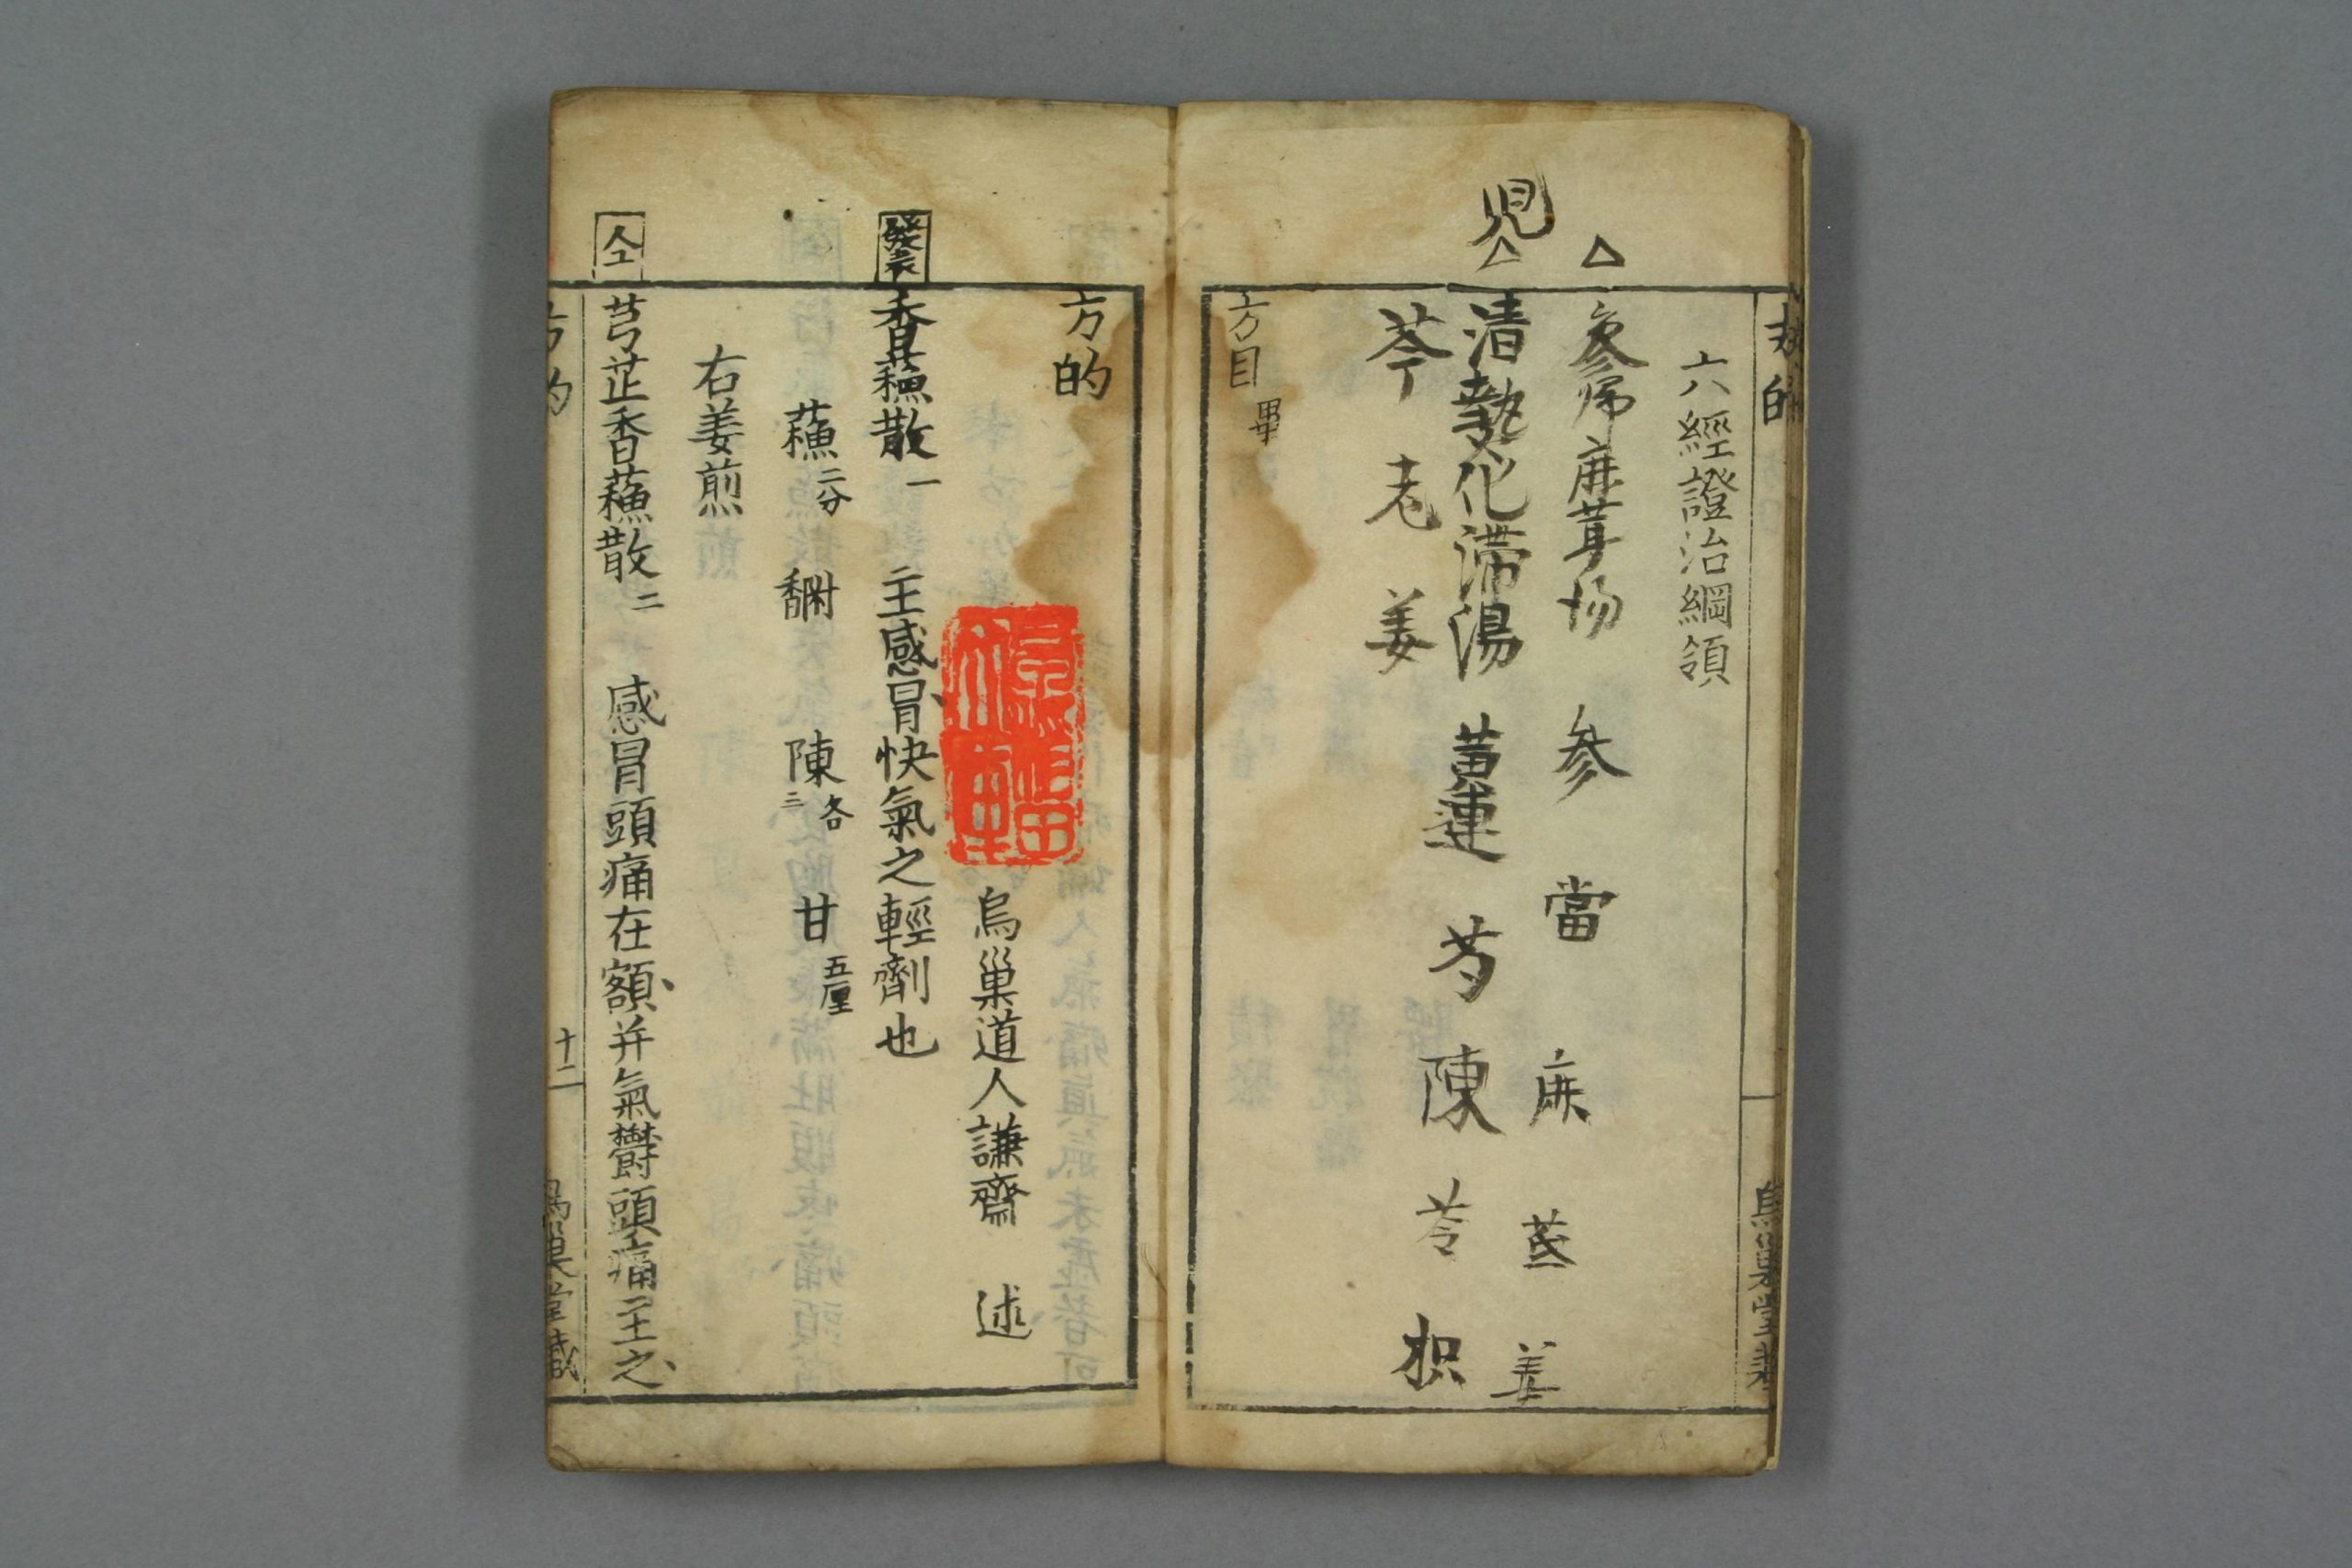 六經證治綱領
△
參歸麻茸湯 参 當 麻 茋 姜
児
△
清熱化滯湯 黄連 芍 陳 苓 枳
芩 老 姜
方目畢
方的
烏巢道人謙齋 述
發表
香蘓散一 主感冒快氣之輕劑也
蘓二分 陳各三 甘五厘
右姜煎
仝
芎芷香蘓散二 感冒頭痛在額、并氣欝頭痛主之、
方的
十二
烏巢堂藏